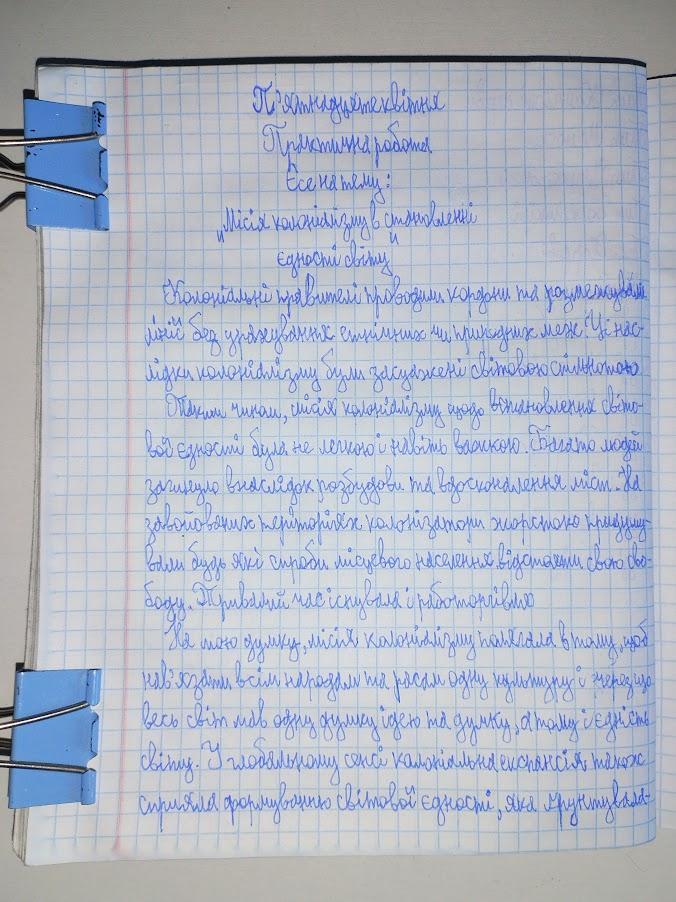 П'ятнадцяте квітня
Практична робота
Есе на тему:
„Місія колоніалізму в становленні
єдності світу"
Колоніальні правителі проводили кордони та розмежували
лінії без урахування етнічних чи природних меж. Ці нас-
лідки колоніалізму були засуджені світовою спільнотою
Таким чином, місія колоніалізму щодо встановлення світо-
вої єдності була не легкою і навіть важкою. Багато людей
загинуло внаслідок розбудови та вдосконалення міст. На
завойованих територіях колонізатори жорстоко придушу-
вали будь які спроби місцевого населення відстояти свою сво-
боду. Тривалий час існувала і работоргівля
На мою думку, місія колоніалізму полягала в тому, щоб
нав'язати всім народам та расам одну культуру і через що
весь світ мав одну думку ідею та думку, а тому і єдність
світу. У глобальному сенсі колоніальна експансія також
сприяла формуванню світової єдності, яка ґрунтувала-